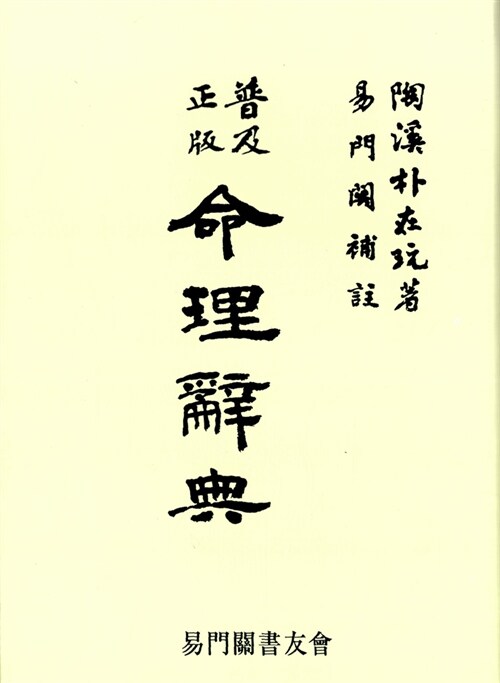 陶溪朴在玩著
易門関補註
普及
正版
命理辭典
易門關書友會